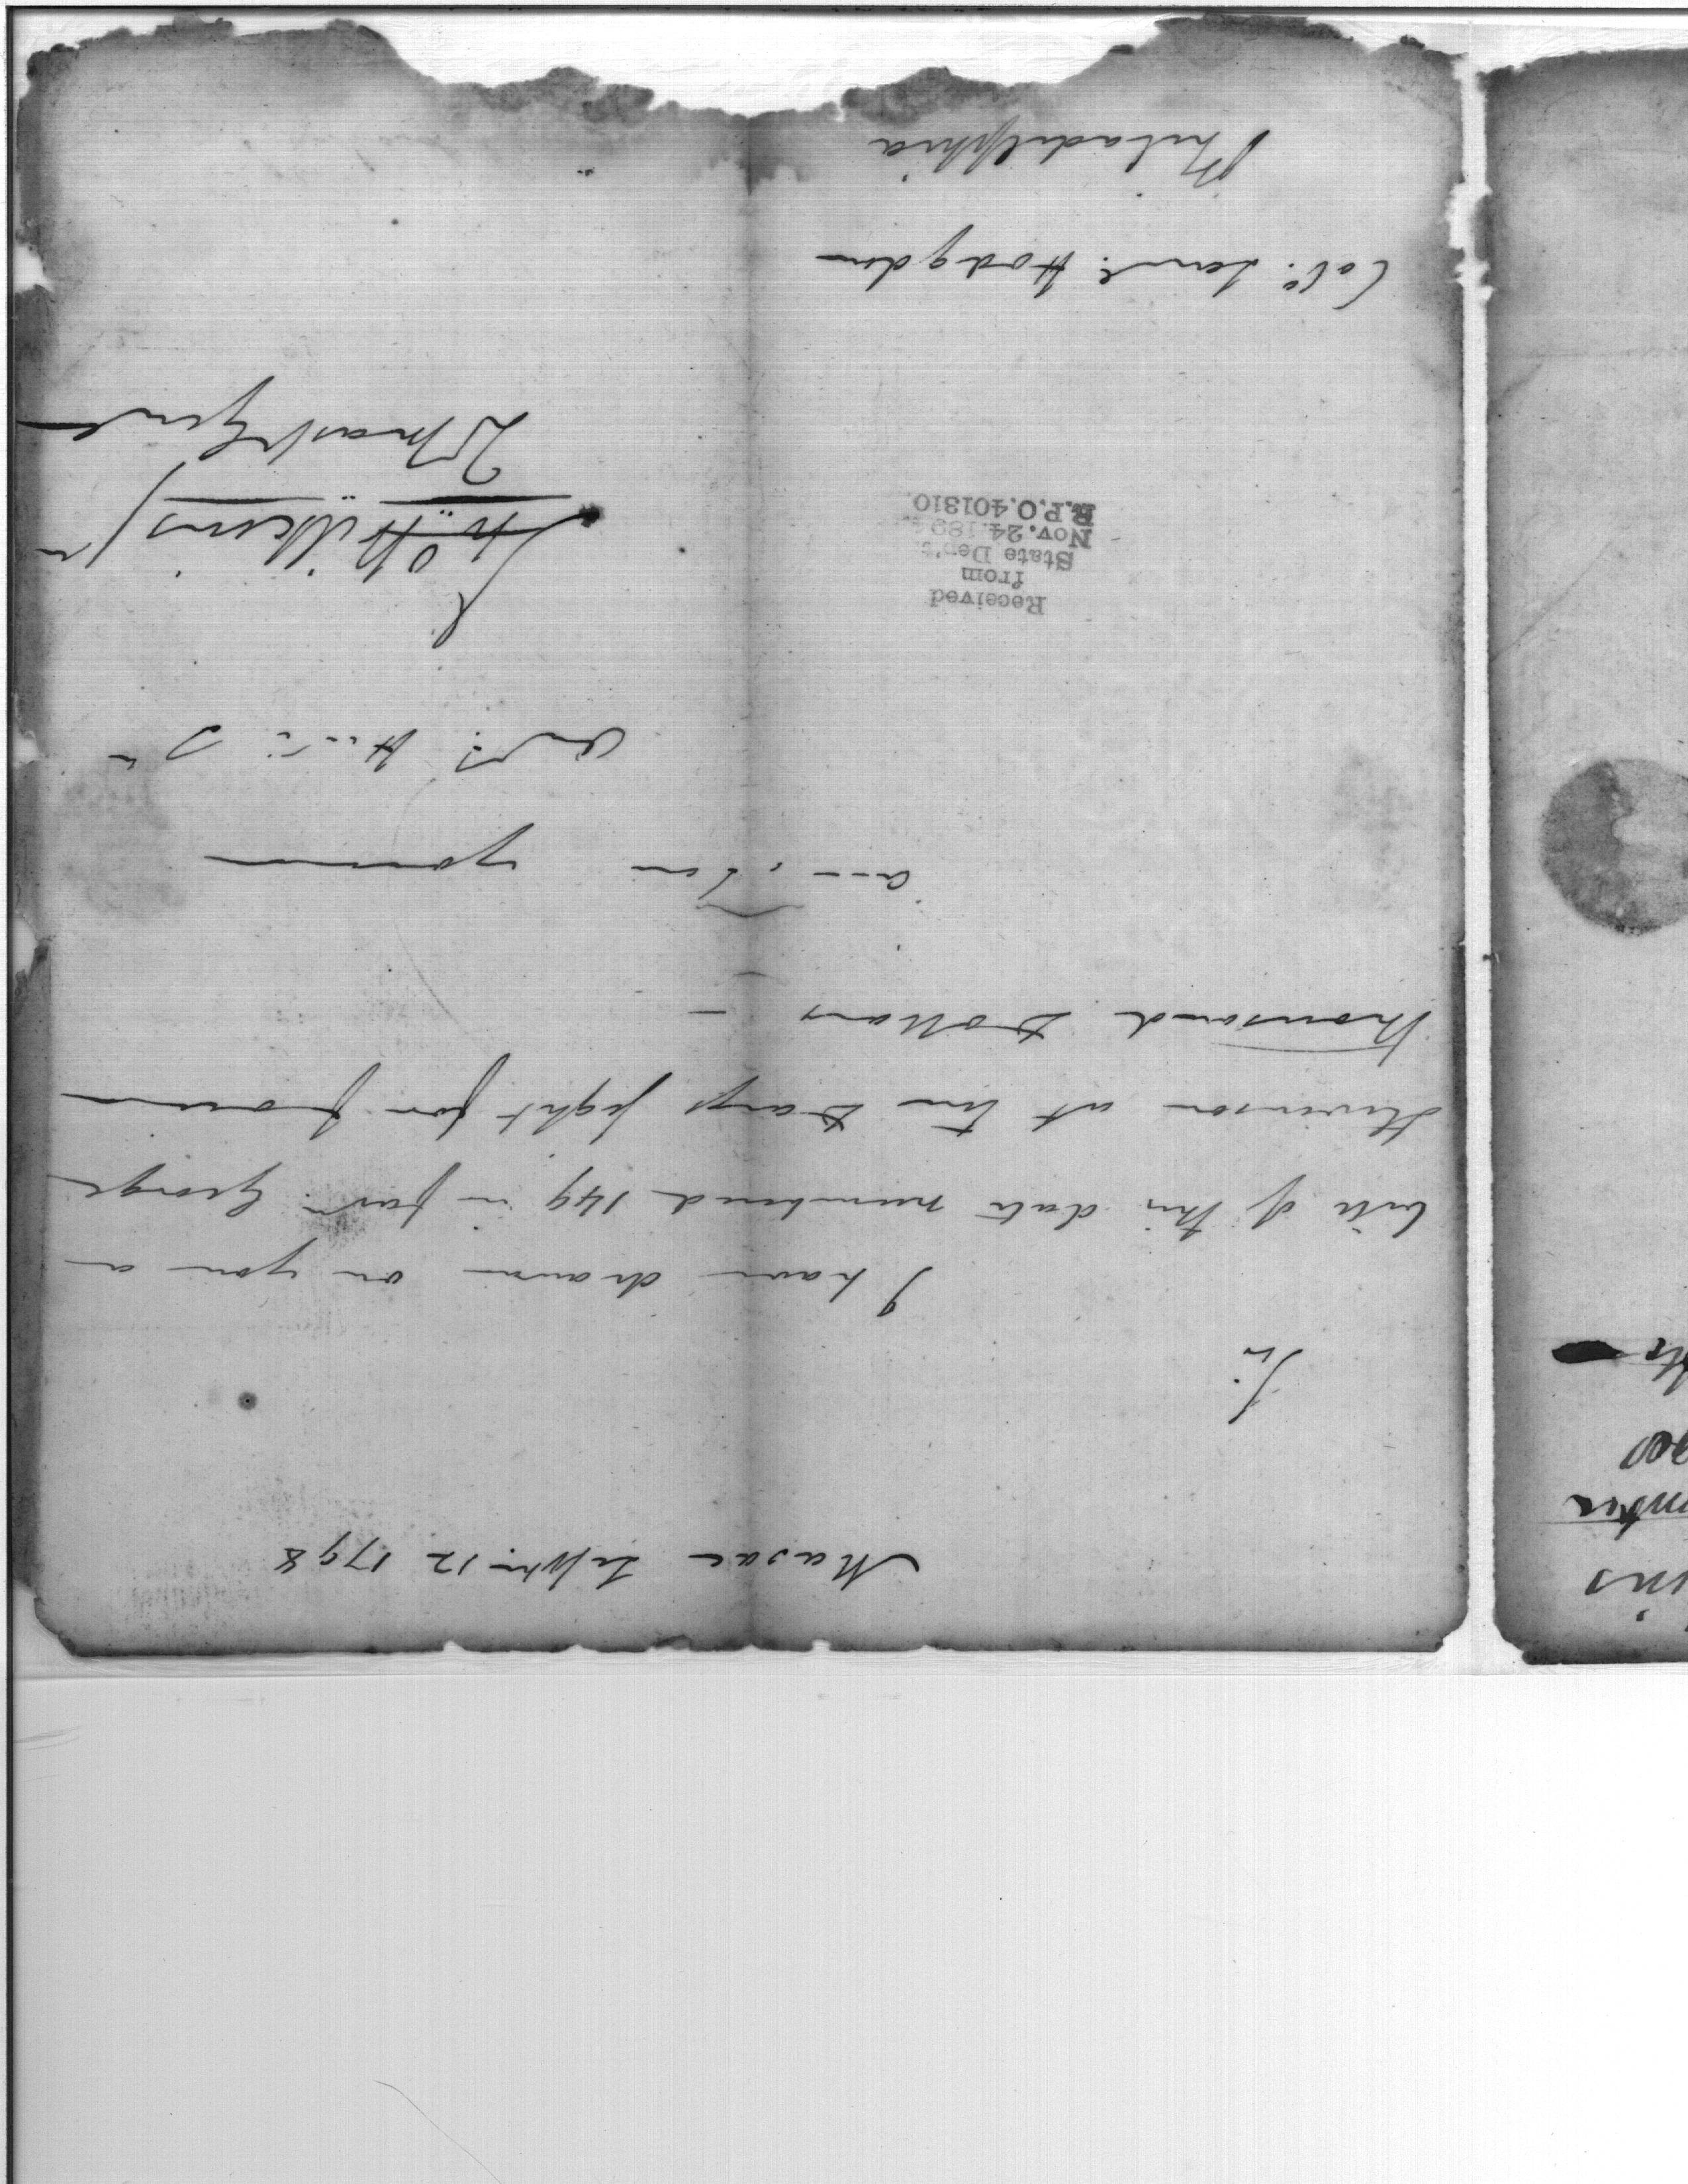 Masac Septr. 12 1798
Sir
I have drawn on you a
bill of this date numbered 149 in favr. George
Stevenson at ten Days sight for four
thousand Dollars —
am, Sir
your
Obt. Hble. St.
Jno Wilkins Jr
Qr Mastr Genl
Received
from
State Dep't.
Nov. 24. 189
R.P.O. 401310
Colo. Saml. Hodgdon
Philadelphia